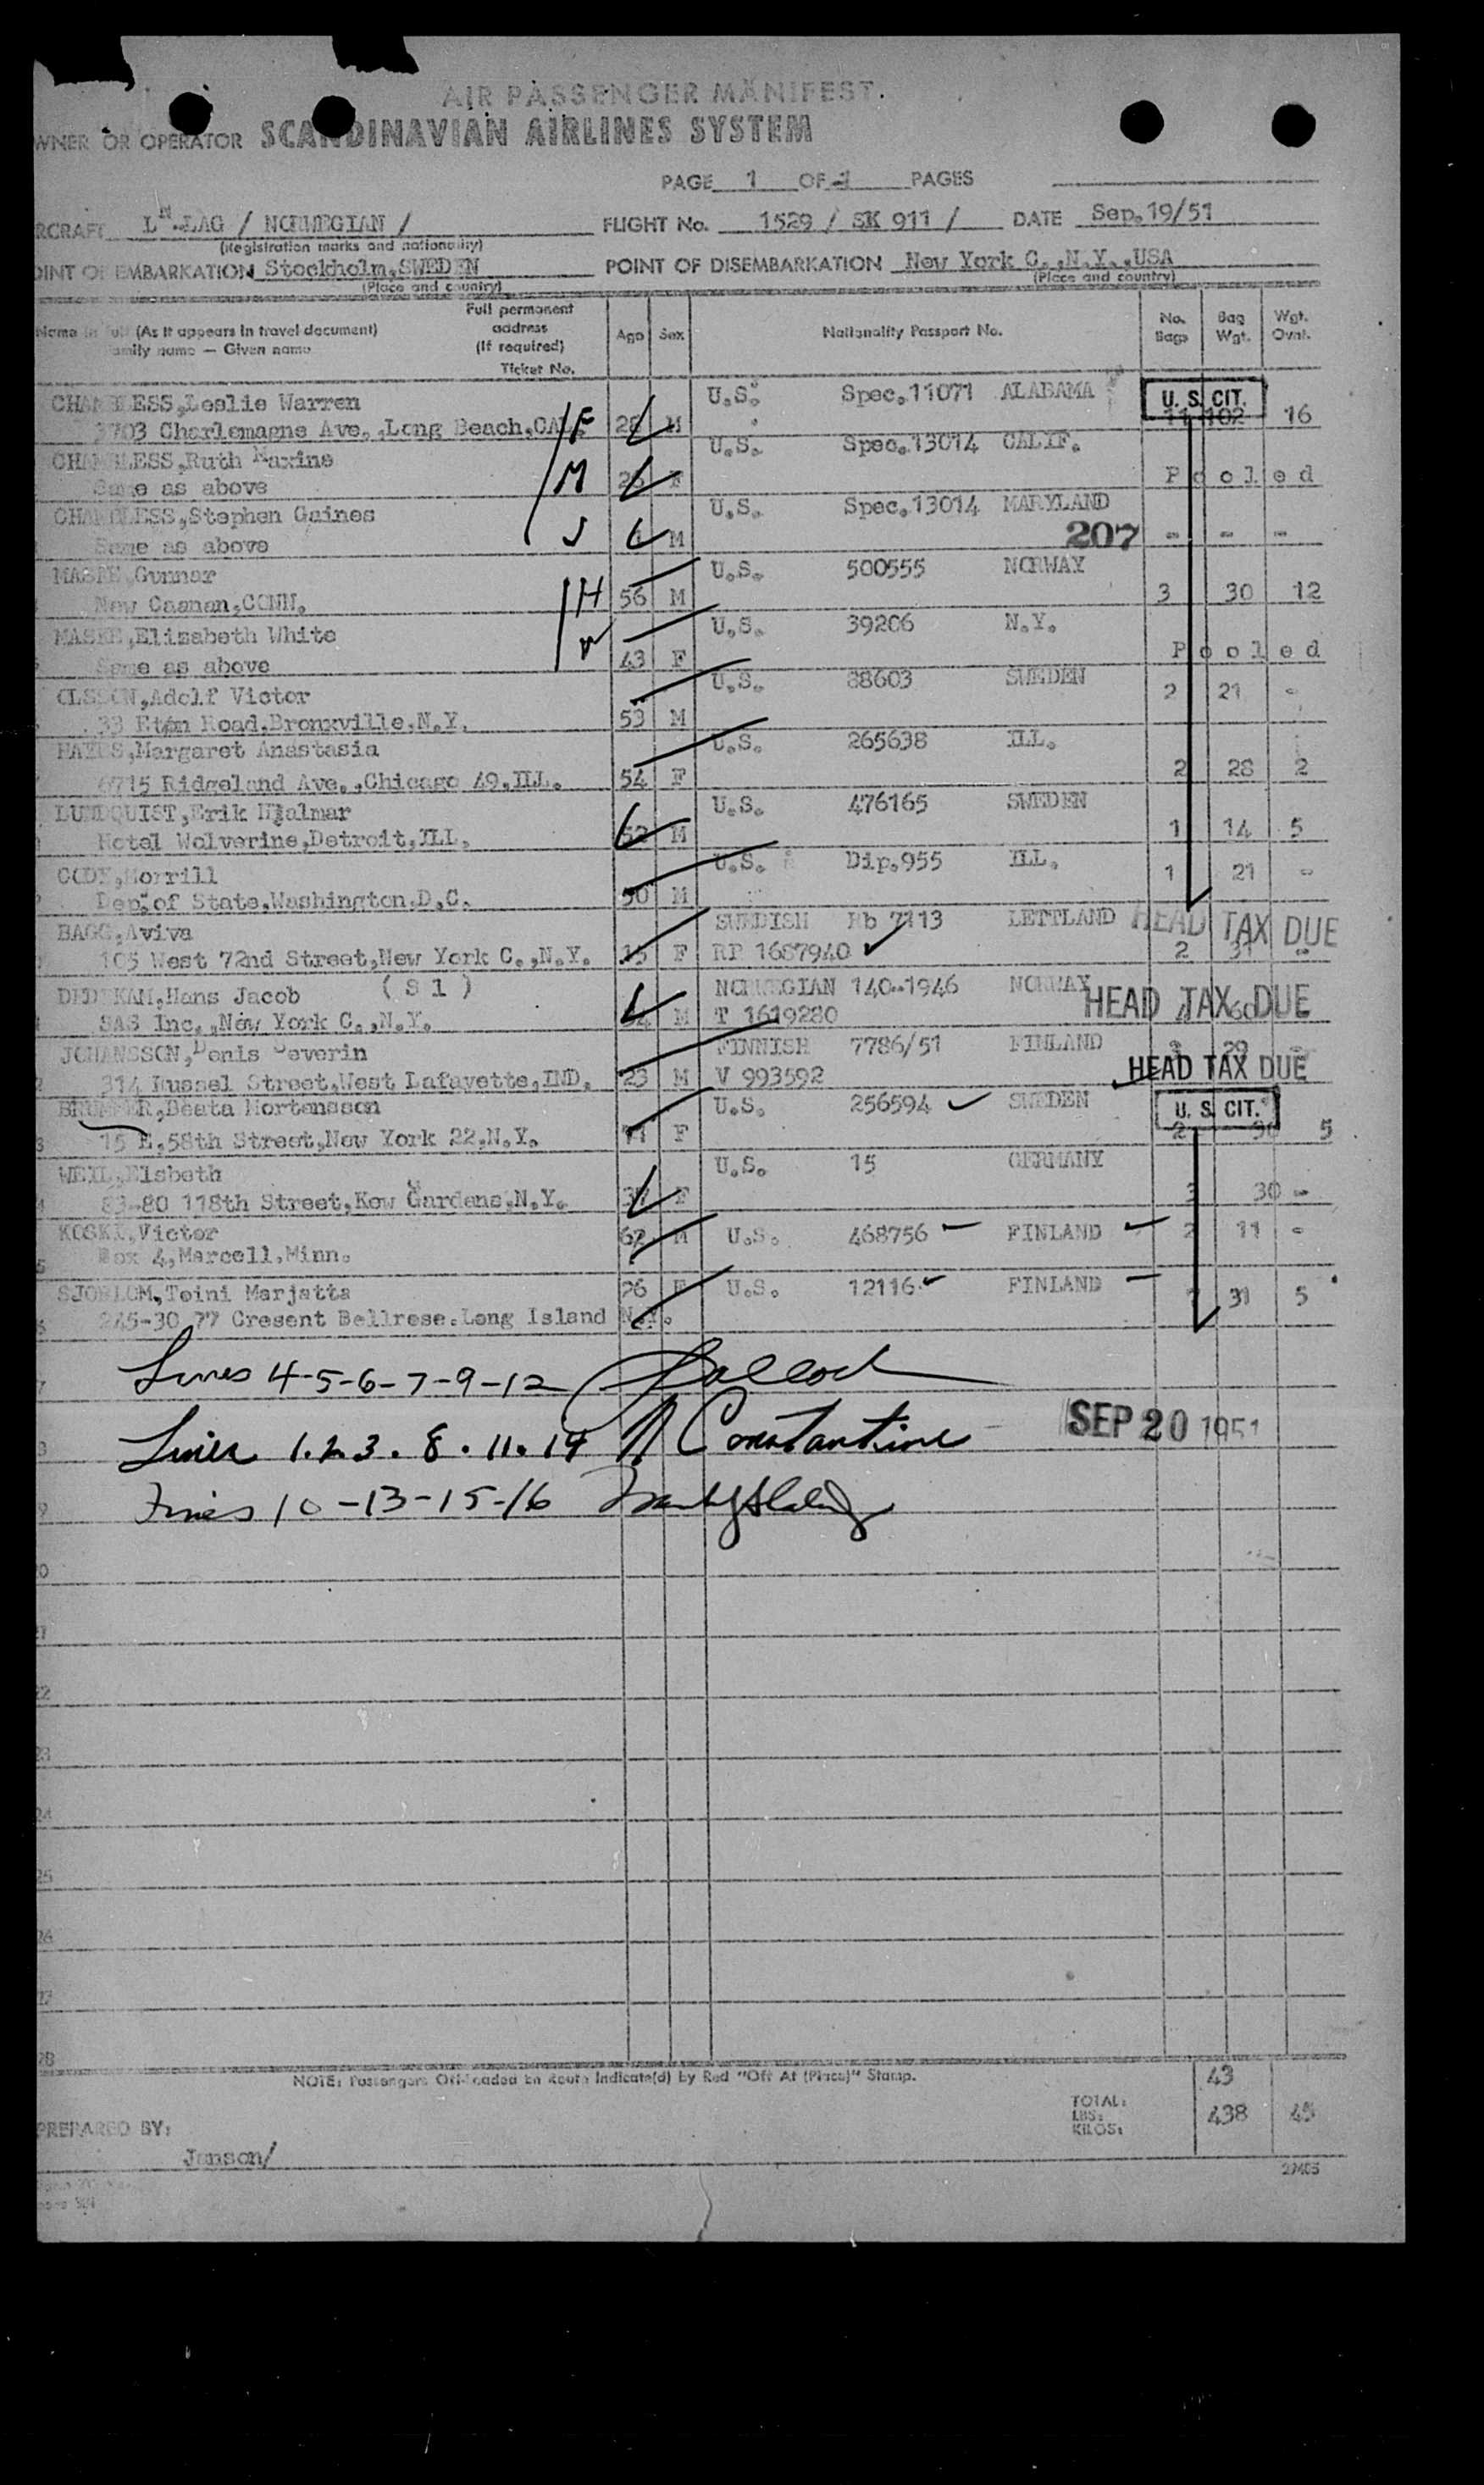 AIR PASSENGER MANIFEST.
WNER OR OPERATOR SCANDINAVIAN AIRLINES SYSTEM
PAGE 1 OF 1 PAGES
RCRAFT LN-LAG / NORWEGIAN / FLIGHT No. 1529 / SK 911 / DATE Sep.19/51
(Registration marks and nationality)
OINT OF EMBARKATION Stockholm,SWEDEN POINT OF DISEMBARKATION New York C.,N.Y.,USA
(Place and country) (Place and country)
Name in full (As it appears in travel document) Full permanent address (If required) Age Sex Nationality Passport No. No. Bags Bag Wgt. Wgt. Ovnt.
amily name — Given name Ticket No.
CHAMBLESS,Leslie Warren U.S. Spec.11071 ALABAMA U. S. CIT.
3703 Charlemagne Ave.,Long Beach,CAL. F 28 M 11 102 16
CHAMBLESS,Ruth Maxine U.S. Spec.13014 CALIF.
Same as above M F Pooled
CHAMBLESS,Stephen Gaines U.S. Spec.13014 MARYLAND
Same as above S M 207 - - -
Gunnar U.S. 500555 NORWAY
New Caanan,CONN. H 56 M 3 30 12
Elizabeth White U.S. 39206 N.Y.
Same as above W 43 F Pooled
OLSSON,Adolf Victor U.S. 88603 SWEDEN 2 21 -
33 Eton Road,Bronxville,N.Y. 53 M
HAYES,Margaret Anastasia U.S. 265638 ILL.
6715 Ridgeland Ave.,Chicago 49,ILL. 54 F 2 28 2
LUNDQUIST,Erik Hjalmar U.S. 476165 SWEDEN
Hotel Wolverine,Detroit,ILL. 52 M 1 14 5
CODY,Morrill U.S. Dip.955 ILL. 1 21 -
Dep.of State,Washington.D.C. 50 M
BAGG,Aviva SWEDISH Rb 7113 LETTLAND HEAD TAX DUE
105 West 72nd Street,New York C.,N.Y. F RP 1687940 2 31 -
DEDEKAM,Hans Jacob ( S 1 ) NORWEGIAN 140-1946 NORWAY HEAD TAX DUE
SAS Inc.,New York C.,N.Y. M T 1619280 60
JOHANSSON,Denis Severin FINNISH 7786/51 FINLAND 29 -
314 Russel Street,West Lafayette,IND. 23 M V 993592 HEAD TAX DUE
Beata Mortensson U.S. 256594 SWEDEN U. S. CIT.
15 E.58th Street,New York 22,N.Y. 71 F 2 5
WEIL,Elsbeth U.S. 15 GERMANY
83-80 118th Street,Kew Gardens,N.Y. 37 F 3 30 -
KOSKI,Victor 62 M U.S. 468756 FINLAND 2 11 -
Box 4,Marcell,Minn.
SJOBLOM,Toini Marjatta F U.S. 12116 FINLAND 31 5
245-30 77 Cresent Bellrose.Long Island N.Y.
Lines 4-5-6-7-9-12
Lines 1.2.3.8.11.14 N Constantine SEP 20 1951
Lines 10-13-15-16
NOTE: Passengers Off-loaded En Route Indicate(d) by Red "Off At (Place)" Stamp.
43
TOTAL:
LBS: 438 45
KILOS:
PREPARED BY:
Jonson/
27405